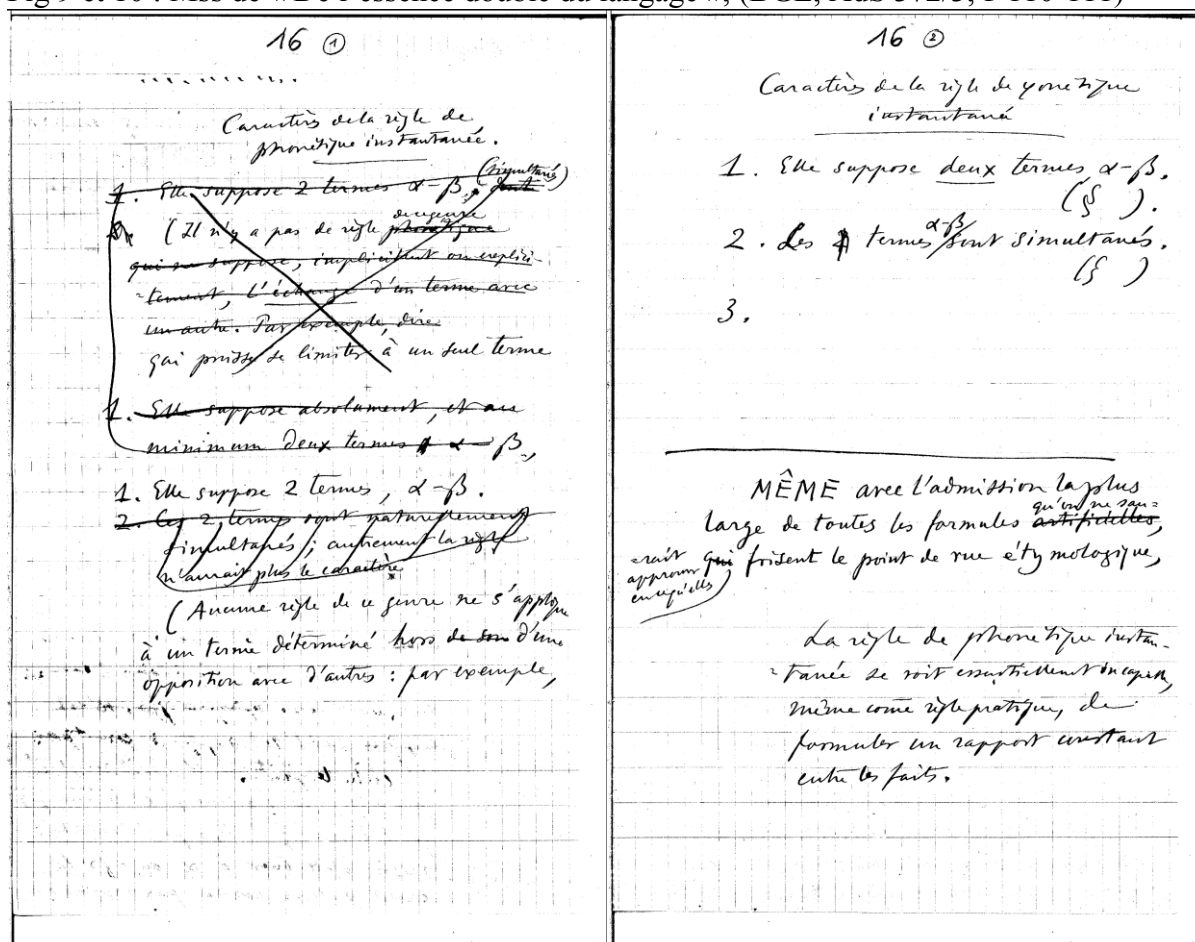 Fig 9 et 10 : Mss de «De l'essence double du langage», (BGE, AdS 372/3, f 110-111)
16 ①
Caractères de la règle de
phonétique instantanée.
1. Elle suppose 2 termes α-β, (simultanés) dont
de ce genre
(Il n'y a pas de règle phonétique
qui ne suppose, implicitement ou explici-
-tement, l'échange d'un terme avec
un autre. Par exemple, dire
qui puisse se limiter à un seul terme
1. Elle suppose absolument, et au
minimum deux termes α - β.,
1. Elle suppose 2 termes, α-β.
2. Ces 2 termes sont naturellement
simultanés ; autrement la règle
n'aurait plus le caractère
(Aucune règle de ce genre ne s'applique
à un terme déterminé hors de son d'une
opposition avec d'autres : par exemple,
16 ②
Caractères de la règle de phonétique
instantané
1. Elle suppose deux termes α-β.
(§ ).
α-β
2. Les termes sont simultanés.
(§ )
3.
MÊME avec l'admission la plus
qu'on ne sau=
large de toutes les formules artificielles,
-rait
approuver
qui frisent le point de vue étymologique,
La règle de phonétique instan-
=tanée se voit essentiellement incapable,
même come règle pratique, de
formuler un rapport constant
entre les faits.